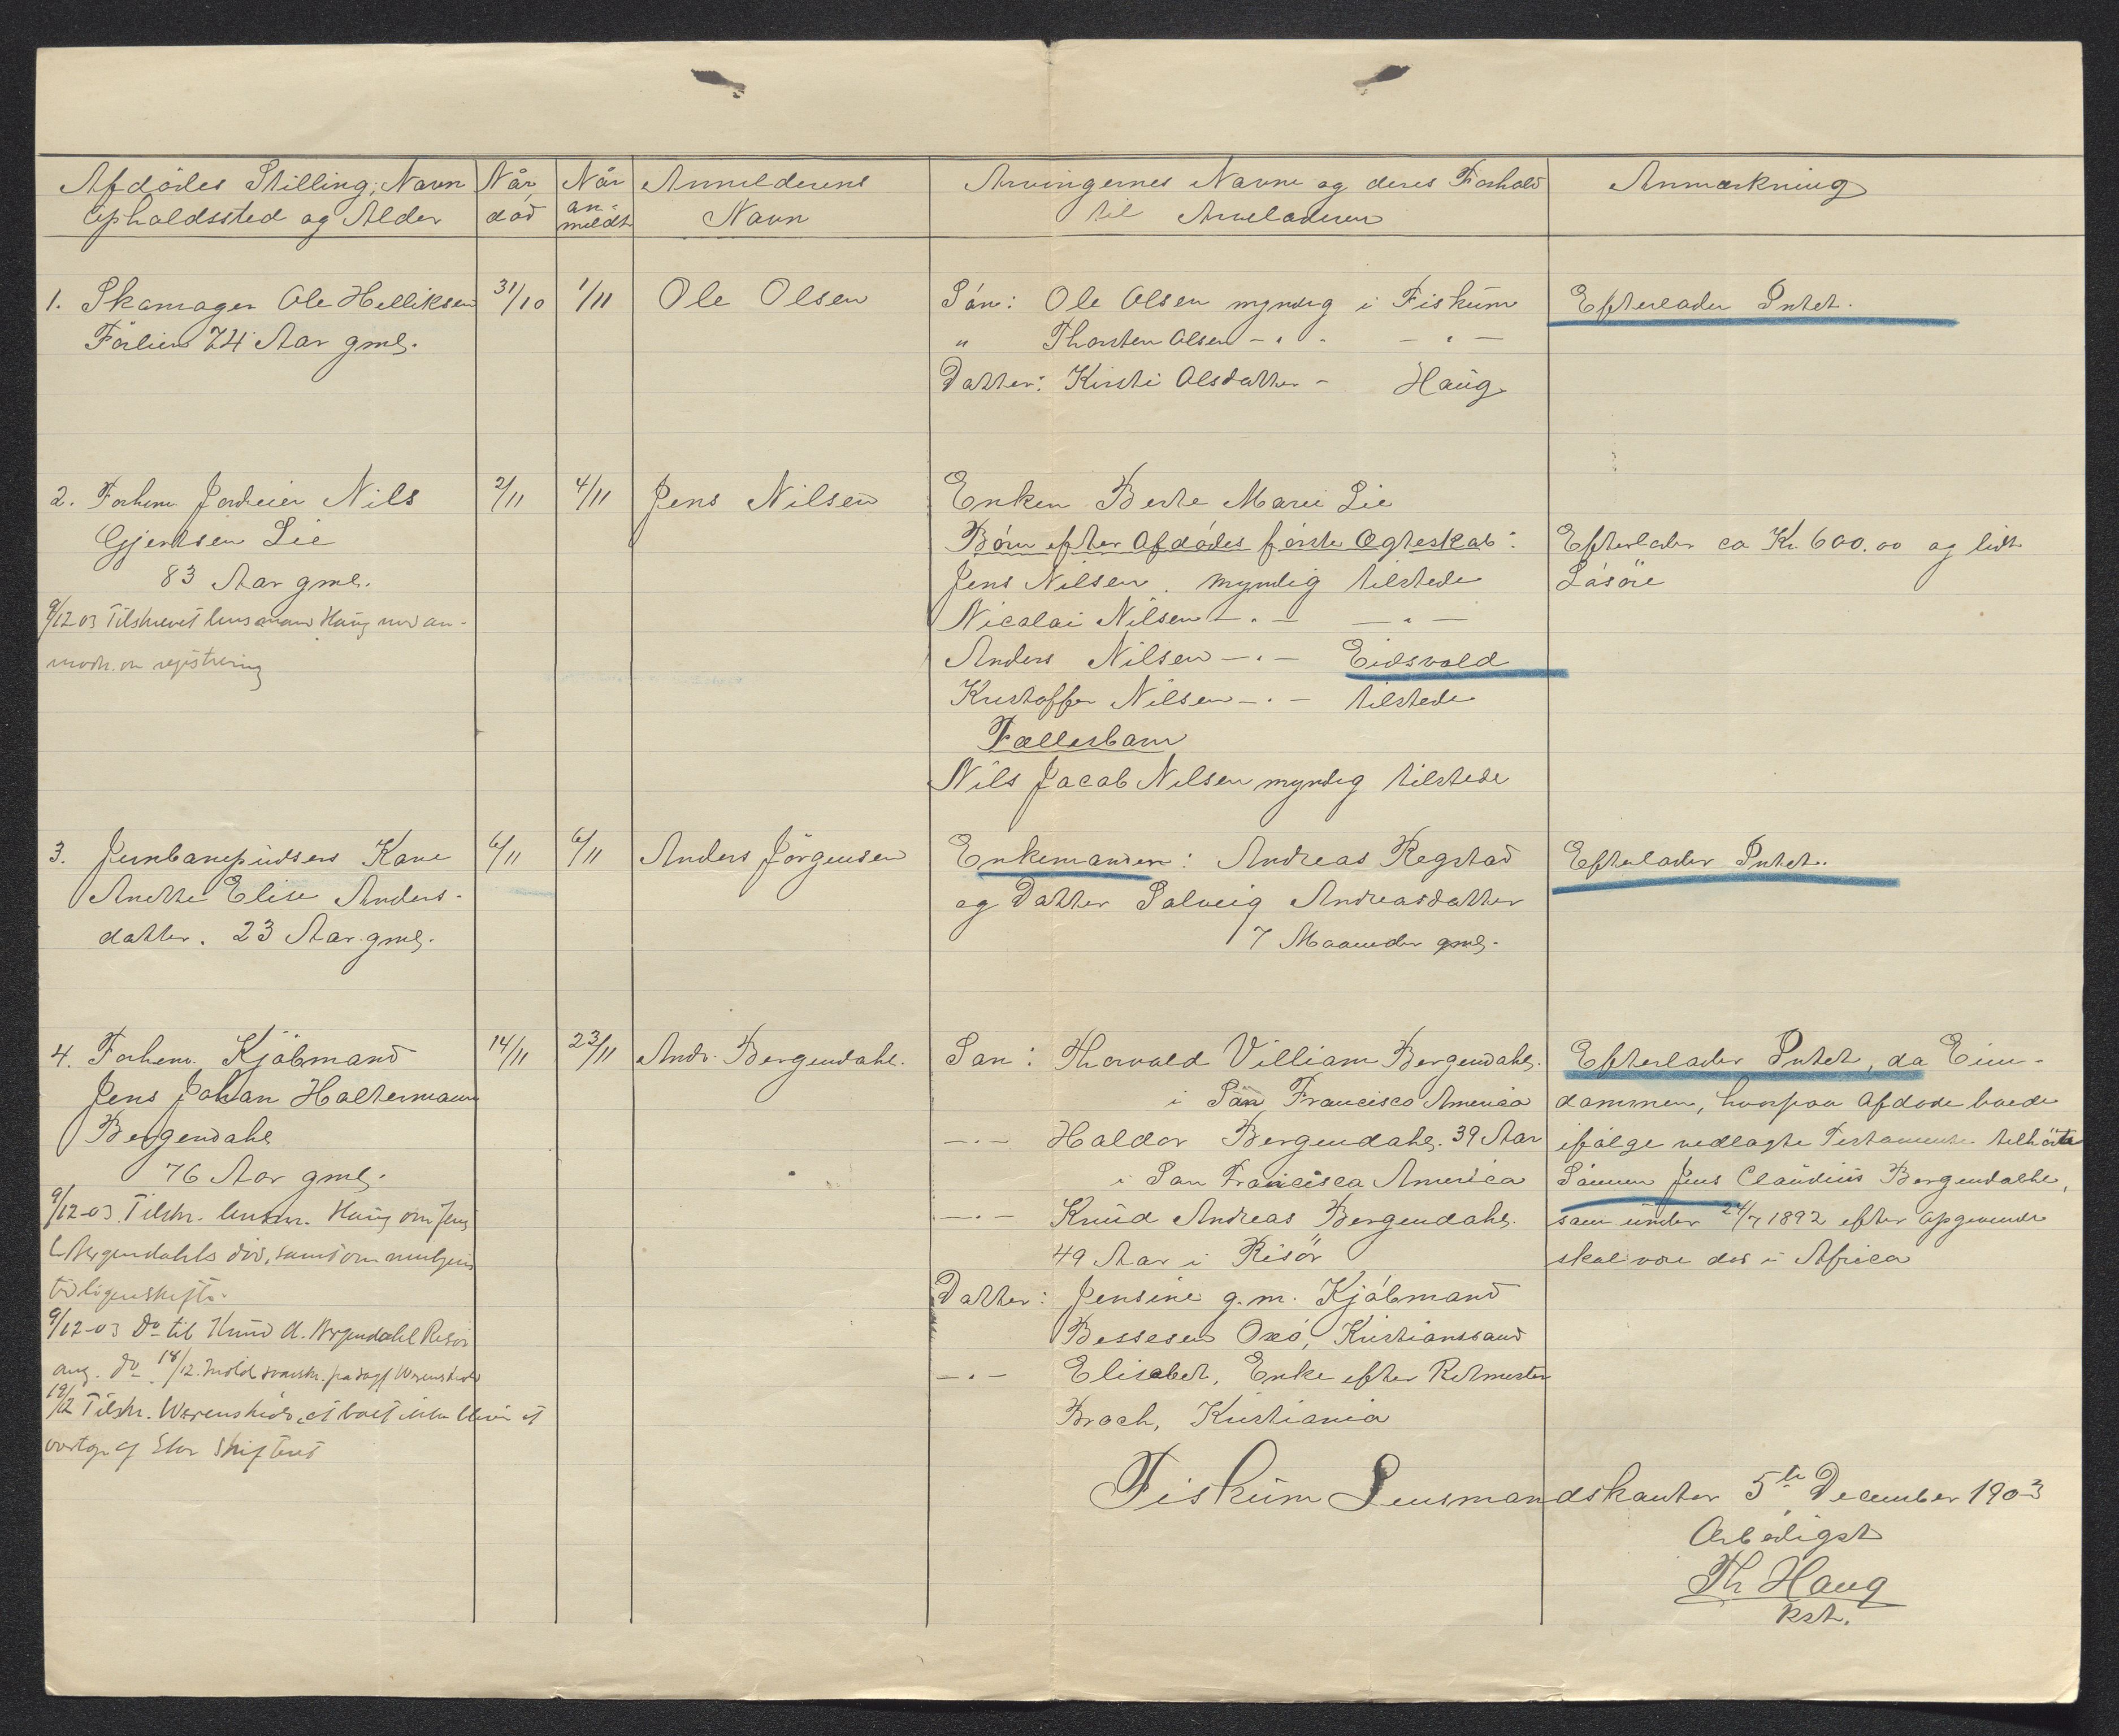 Afdødes Stilling, Navn
Opholdssted og Alder
Når
død
Når
an-
meldt
Anmelderens
Navn
Arvingernes Navne og deres Forhold
til Arveladeren
Anmærkning
1. Skomager Ole Helliksen
Förlien 74 Aar gml.
31/10
1/11
Ole Olsen
Sön: Ole Olsen myndig i Fiskum
" Thorsten Olsen - " - - " -
Datter: Kirsti Olsdatter - Haug
Efterlader Intet.
2. Forhenv. Jordeier Nils
Gjertsen Lie
83 Aar gml.
9/12 03 Tilskrevet lensmann Haug med an-
modn. om registrering
2/11
4/11
Jens Nilsen
Enken Berte Marie Lie
Börn efter Afdødes første Ægteskab:
Jens Nilsen. myndig tilstede
Nicolai Nilsen - " - - " -
Anders Nilsen - " - Eidsvold
Kristoffer Nilsen - " - tilstede
Fællesbarn
Nils Jacob Nilsen myndig tilstede
Efterlader ca Kr. 600.00 og lidt
Lösöre
3. Jernbanepudsers Kone
Anette Elise Anders-
datter. 23 Aar gml.
6/11
6/11
Anders Jörgensen
Enkemanden: Andreas Regstad
og Datter Solveig Andreasdatter
7 Maaneder gml.
Efterlader Intet.
4. Forhenv. Kjöbmand
Jens Johan Haltermann
Bergendahl
76 Aar gml.
9/12-03. Tilskr. lensm. Haug om Jens
C. Bergendahls död, samt om
9/12-03 Do til Knud A. Bergendahl Risör
ang. do 18/12.
19/12 Tilskr. Werenskiold, at boet ikke blir at
14/11
23/11
Andr. Bergendahl.
Sön: Thorvald Villiam Bergendahl.
i San Francisco America
- " - Haldor Bergendahl. 39 Aar
i San Francisco America
- " - Knud Andreas Bergendahl.
49 Aar i Risör
Datter: Jensine g.m. Kjöbmand
Bessesen Oxö, Kristianssand
- " - Elisabet, Enke efter Ritmester
Broch, Kristiania
Efterlader Intet, da Eien-
dommen, hvorpaa Afdøde boede
ifølge vedlagte Testamente tilhörte
Sönnen Jens Claudius Bergendahl,
som under 24/7 1892 efter Opgivende
skal være död i Africa
Fiskum Lensmandskontor 5te December 1903
Ærbødigst
Th Haug
kst.